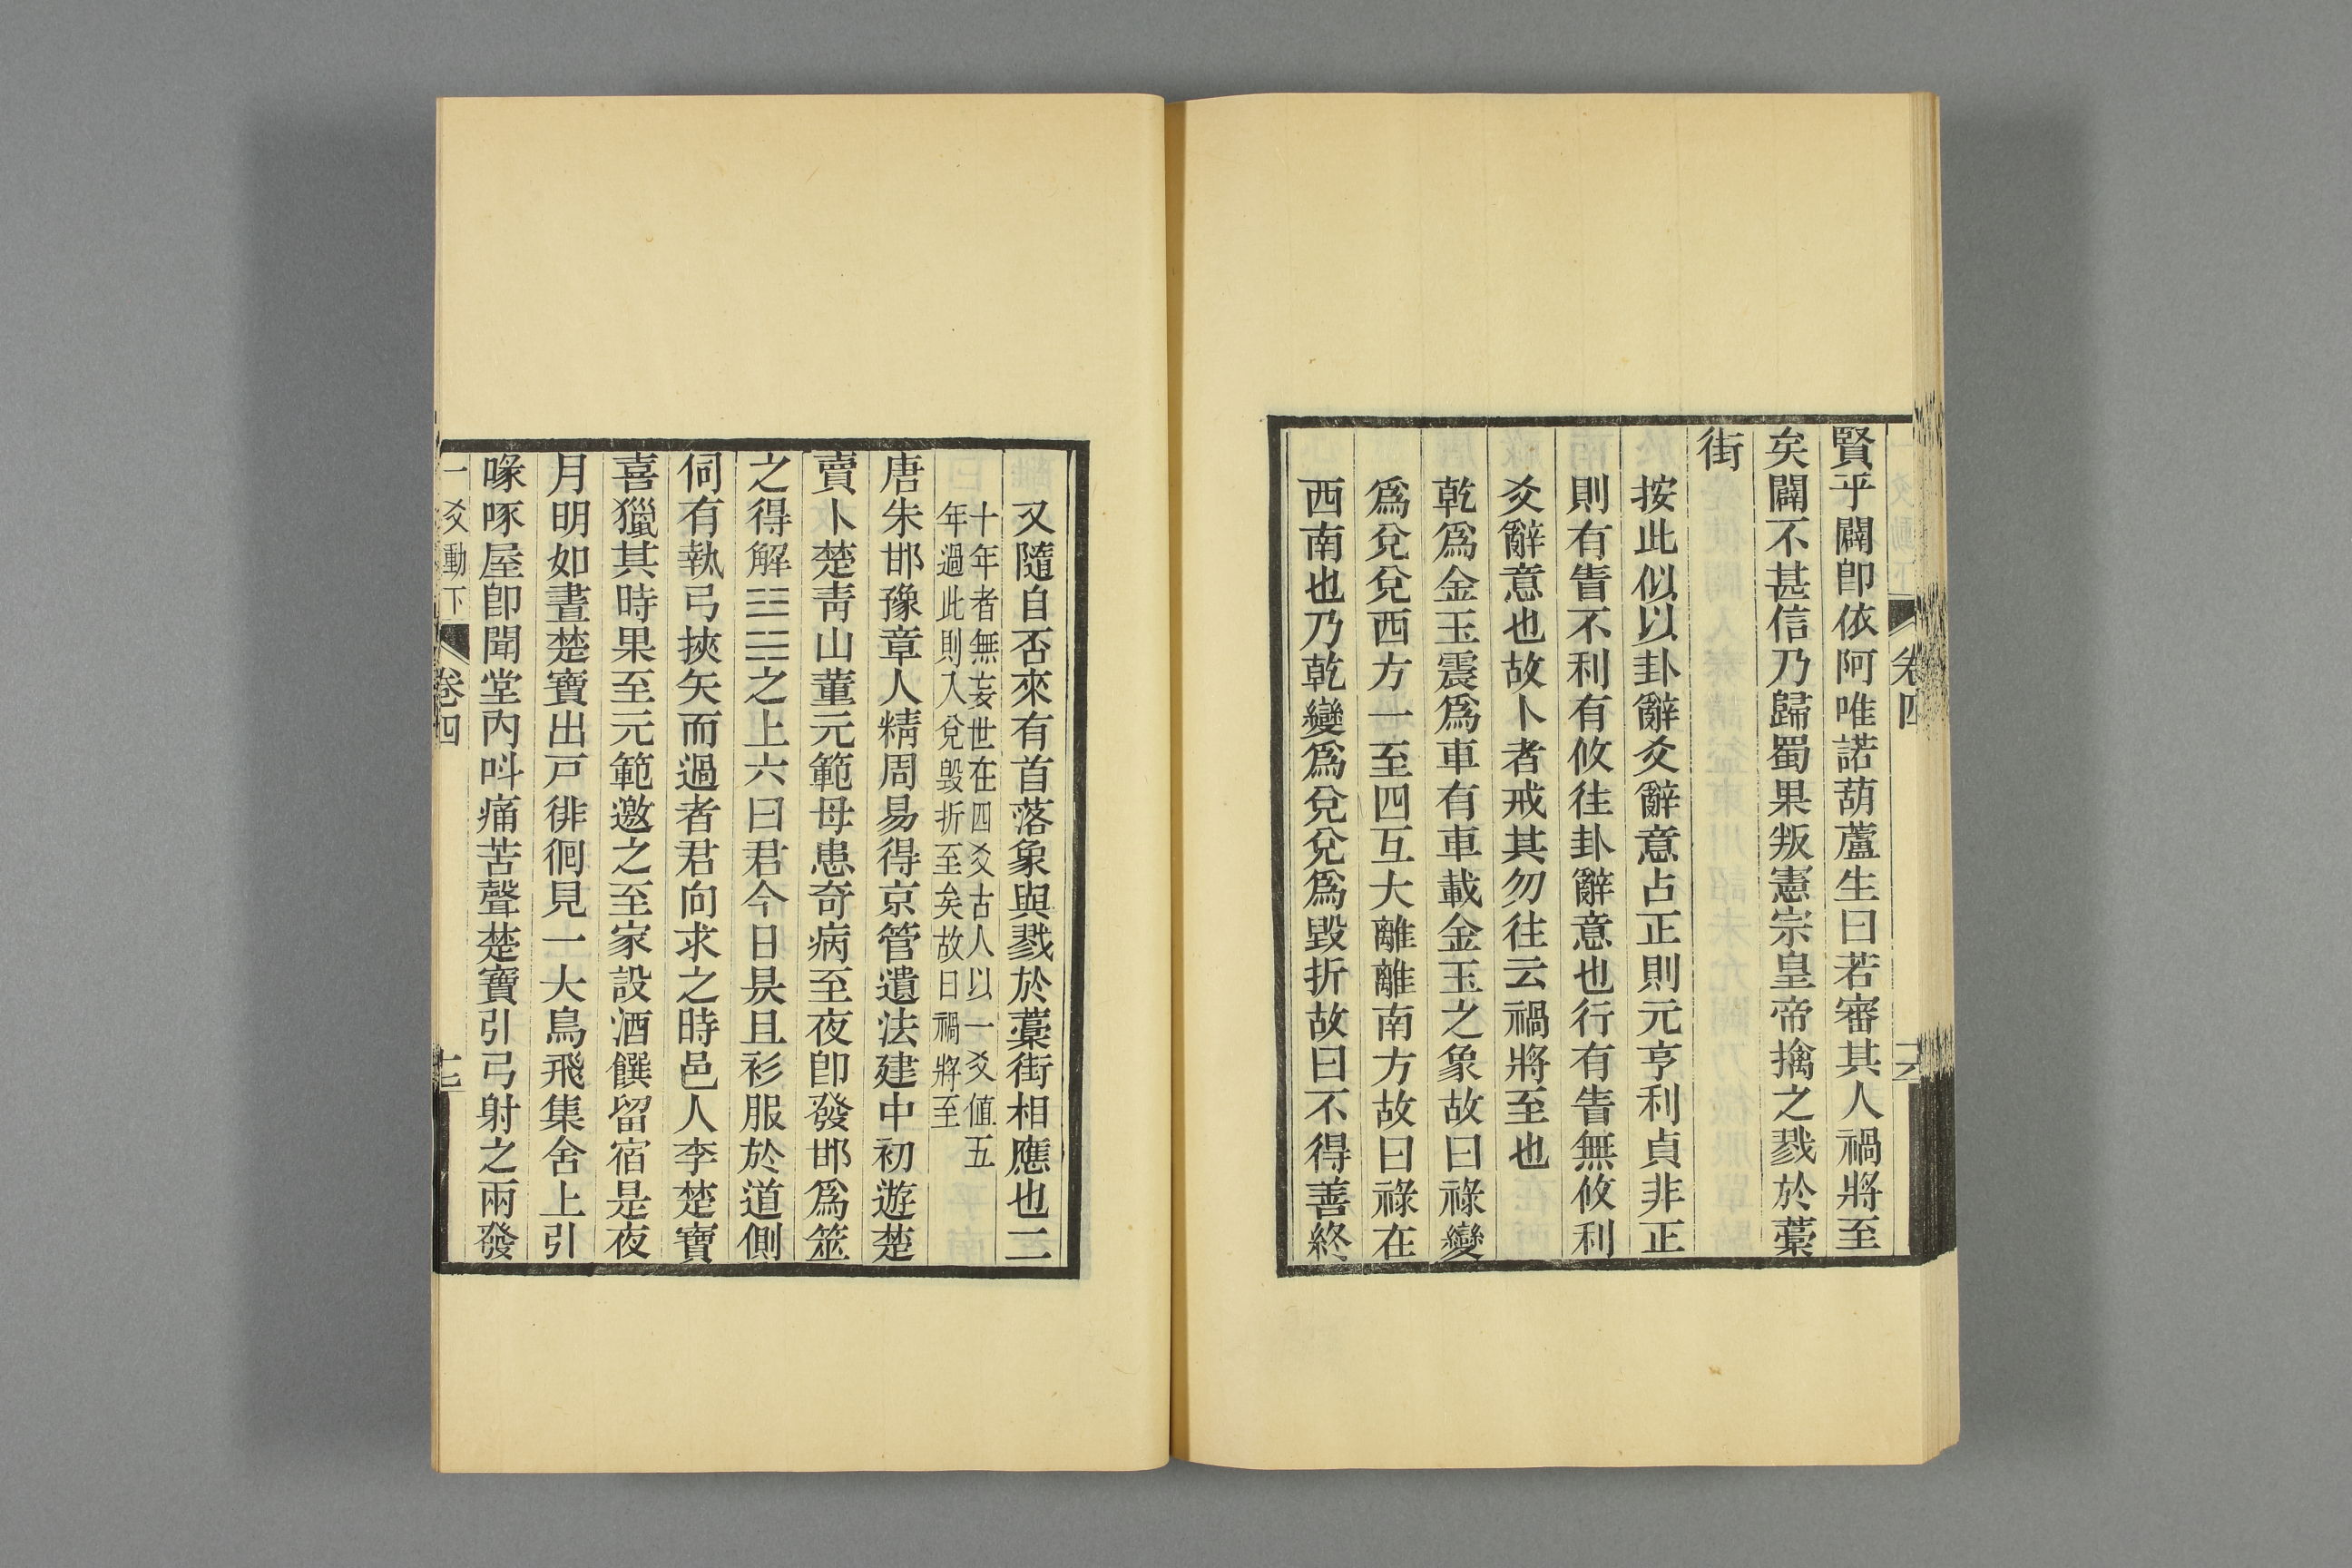 賢乎闢卽依阿唯諾葫蘆生曰若審其人禍將至
矣闢不甚信乃歸蜀果叛憲宗皇帝擒之戮於藁
街
按此似以卦辭爻辭意占正則元亨利貞非正
則有眚不利有攸往卦辭意也行有眚無攸利
爻辭意也故卜者戒其勿往云禍將至也
乾爲金玉震爲車有車載金玉之象故曰祿變
爲兌兌西方一至四互大離離南方故曰祿在
西南也乃乾變爲兌兌爲毀折故曰不得善終
又隨自否來有首落象與戮於藁街相應也二
十年者無妄世在四爻古人以一爻値五
年過此則入兌毀折至矣故曰禍將至
唐朱邯豫章人精周易得京管遺法建中初遊楚
賣卜楚靑山董元範母患奇病至夜卽發邯爲筮
之得解䷧之上六曰君今日昃且衫服於道側
伺有執弓挾矢而過者君向求之時邑人李楚寶
喜獵其時果至元範邀之至家設酒饌留宿是夜
月明如晝楚寶出戸徘徊見一大鳥飛集舍上引
喙啄屋卽聞堂內呌痛苦聲楚寶引弓射之兩發
一爻動下 卷四 十七